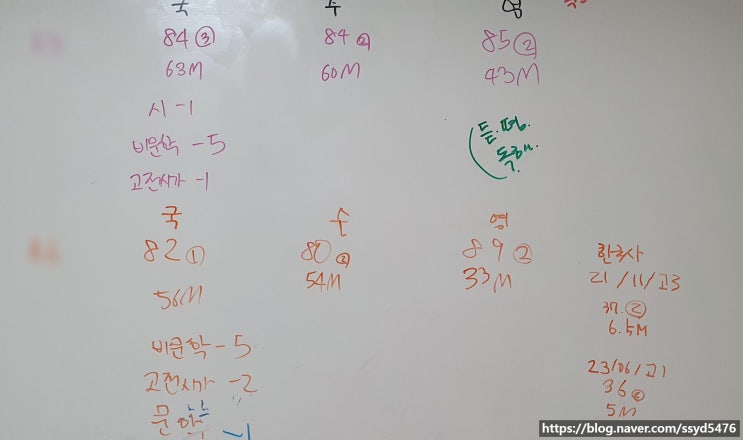 국 수 영
84 ③ 84 ② 85 ②
63M 60M 43M
시 -1
비문학 -5
고전시가 -1
듣.
국 수 영
82 ① 80 ② 89 ②
56M 54M 33M
비문학 -5
고전시가 -2
문학 -1
한국사
21/11/고3
37. ②
6.5M
23/06/고1
36 ②
5M
https://blog.naver.com/ssyd5476